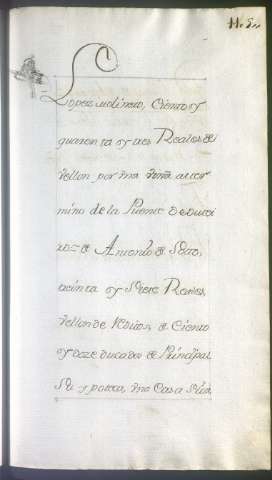 Lopez molinero, Ciento y
quarenta y tres Reales de
vellon por una viña al ter
mino de la Puente de
Antonio de Soto,
treinta y Siete Reales
vellon de Reditos, de Ciento
y doze ducados de Principal
Su ypoteca, una Casa